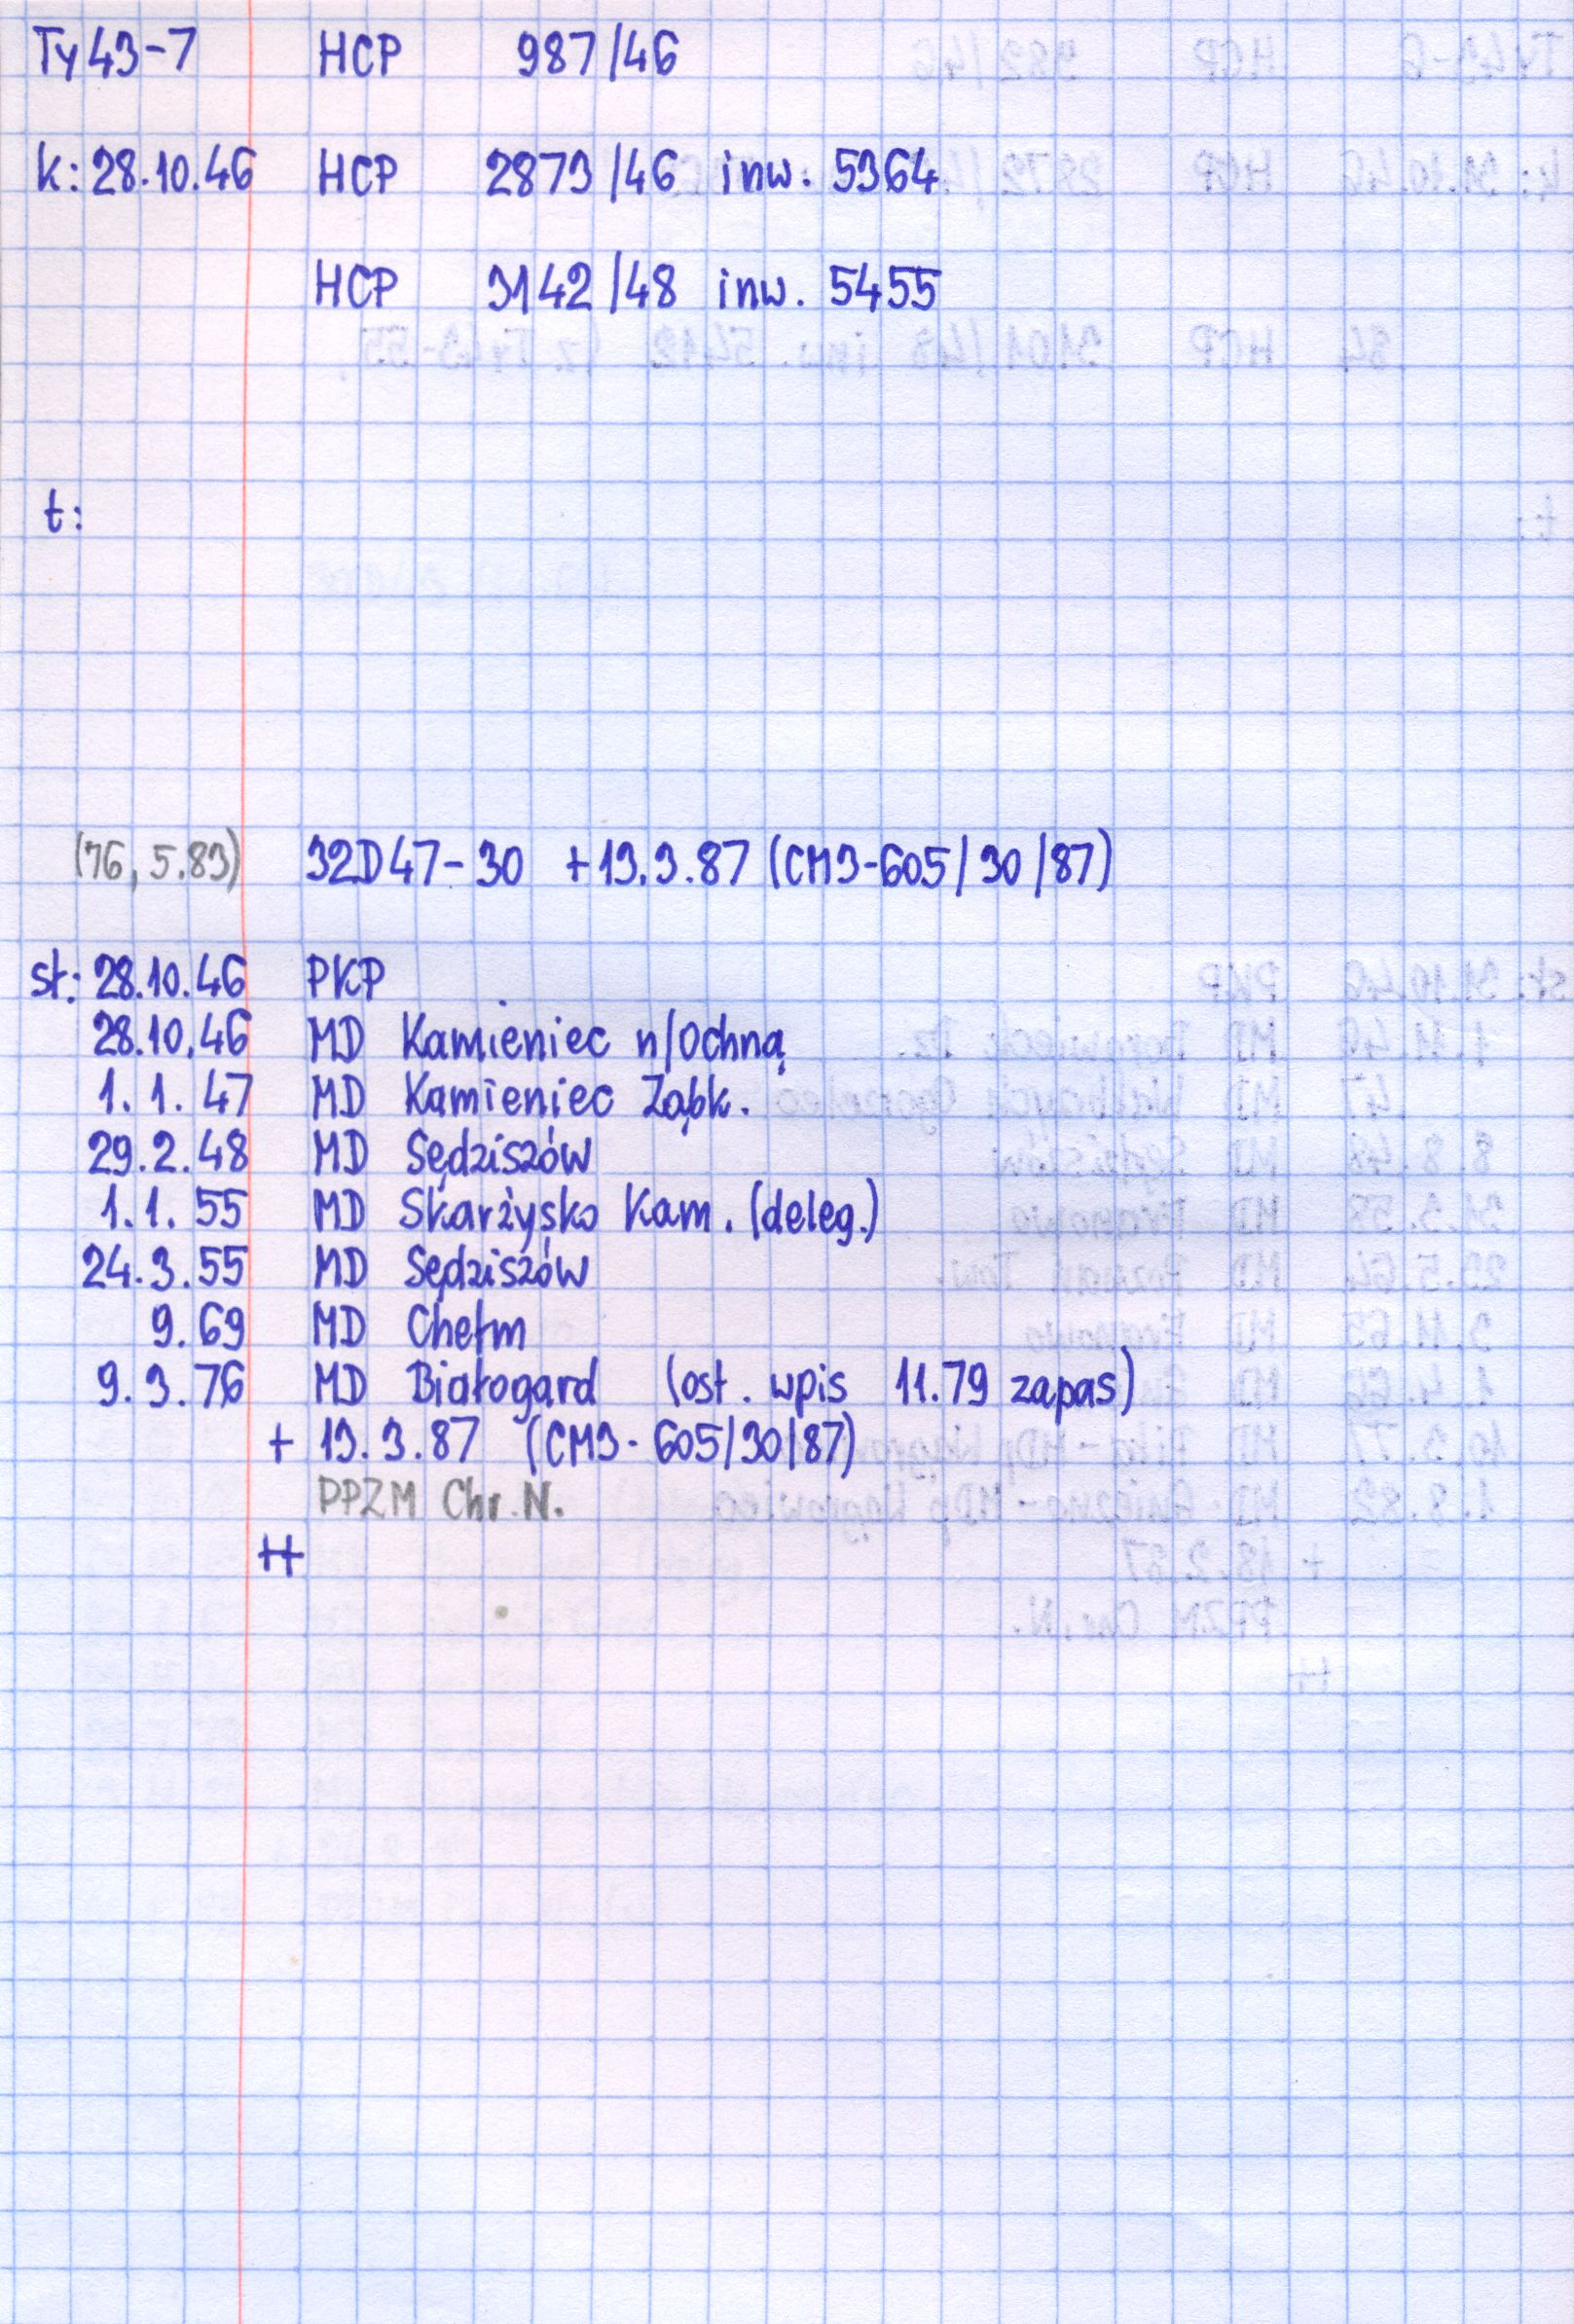 Ty43-7 HCP 987/46
k: 28.10.46 HCP 2873/46 inw. 5364
HCP 3142/48 inw. 5455
t:
(76, 5.83) 32D47-30 + 13.3.87 (CM3-605/30/87)
st: 28.10.46 PKP
28.10.46 MD Kamieniec n/Ochną
1.1.47 MD Kamieniec Ząbk.
29.2.48 MD Sędziszów
1.1.55 MD Skarżysko Kam. (deleg.)
24.3.55 MD Sędziszów
9.69 MD Chełm
9.3.76 MD Białogard (ost. wpis 11.79 zapas)
+ 13.3.87 (CM3-605/30/87)
PPZM Chr. N.
++